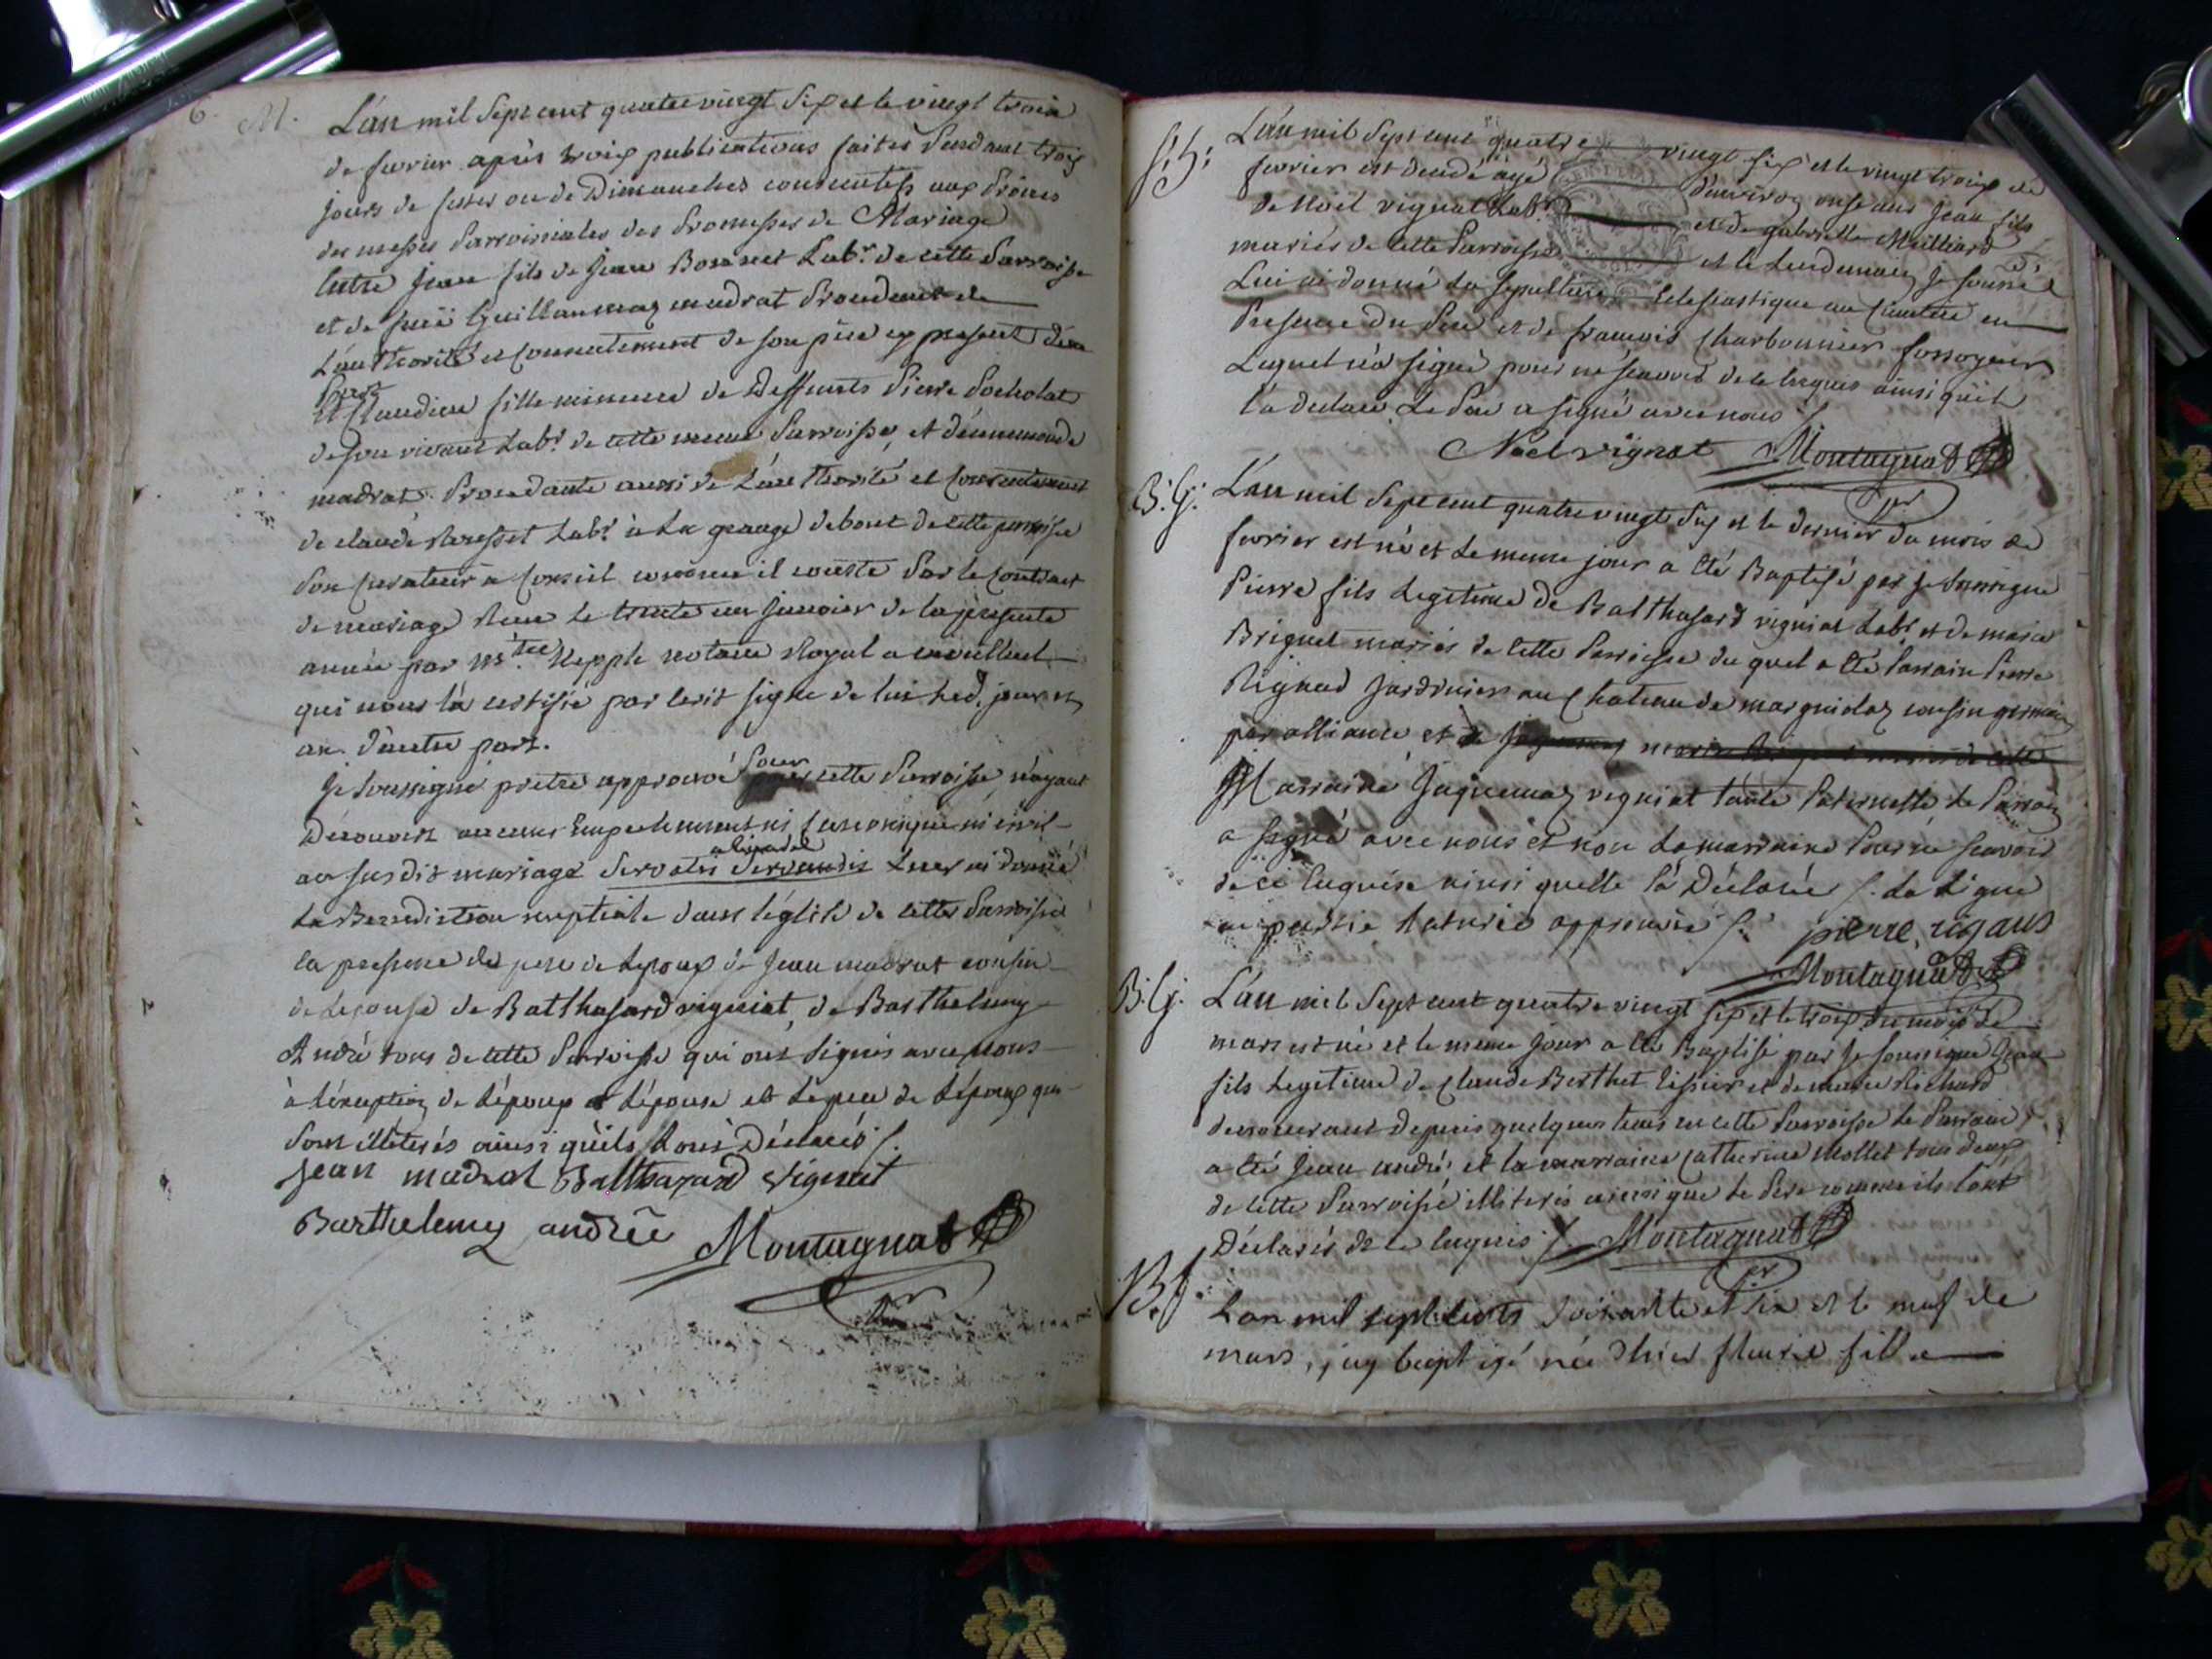 6. M. L'an mil Sept cent quatre vingt Six et le vingt trois
de fevrier après trois publications faites Pendant trois
jours de festes ou de Dimanches consecutifs aux Prônes
des messes Parroissiales des Promesses de Mariage
Entre Jean fils de Jean Bonnet Labr. de cette Parroisse
et de Guillaumaz madrat Procedant de
L'authorité et Consentement de son père cy present d'une
Part
Et Claudine fille mineure de Deffunts Pierre Pocholat
de son vivant Labr. de cette meme Parroisse et d'ennemonde
madrat. Procedante aussi de L'authorité et Consentement
de claude Labr. à La grange debout de cette parroisse
son Curateur a Conseil comme il conste Par le Contract
de mariage Reçu le trente un Janvier de la presente
année par notaire Royal a
qui nous l'a certifié par écrit signé de lui led. jour et
an. d'autre part.
Je Soussigné pretre approuvé Pour cette Parroisse n'ayant
Decouvert aucuns Empechements ni Canonique ni civil
au susdit mariage Servatis Servandis Leur ai donné
La Benediction nuptiale dans l'église de cette Parroisse
en presence du pere de Lepoux de Jean madrat cousin
de Lepouse de Balthasard vigniat, de Barthelemy
André tous de cette Parroisse qui ont signés avec nous
à L'exception de Lépoux de Lépouse et Le pere de Lépoux qui
sont illiterés ainsi qu'ils L'ont Déclarés /.
Jean madrat Balthazard vignat
Barthelemy andrée Montagnat
pr
S: L'an mil Sept cent quatre vingt six et le vingt trois de
fevrier est decedé agé d'environ onse ans Jean fils
de Noël vignat Labr. et de gabrielle Mailliard
mariés de cette Parroisse et le Lendemain Je soussigné
Lui ai donné La sepulture Eclesiastique au Cimetière en
Presence du Pere et de francois Charbonnier fossoyeur
Lequel n'a signé pour ne scavoir de ce Enquis ainsi qu'il
l'a declaré Le Pere a signé avec nous /.
Noel vignat Montagnat
pr
B. G. L'an mil Sept cent quatre vingt Six et le dernier du mois de
fevrier est né et Le meme jour a été Baptisé par Je Soussigné
Pierre fils Legitime de Balthasard vigniat Labr. et de marie
Briguet mariés de cette Parroisse du quel a été Parrain Pierre
Rigaud Jardinier au Chateau de marguiolaz cousin germain
par alliance et
Marraine Jaquemaz vigniat tante Paternelle, Le Parrain
a signé avec nous et non La marraine Pour ne scavoir
de ce Enquise ainsi quelle l'a Déclarée /. La Ligne
en partie Raturée approuvée /. pierre rigaud
Montagnat
B. G. L'an mil Sept cent quatre vingt six et le trois du mois de
mars est né et le meme Jour a été Baptisé par Je soussigné Jean
fils Legitime de Claude Berthet tissier et de marie Richard
demeurant depuis quelques tems en cette Parroisse le Parrain
a été Jean andré et la marraine Catherine Mollet tous deux
de cette Parroisse illiterés ainsi que Le Pere comme ils L'ont
Déclarés de ce Enquis /. Montagnat
pr
B. f. L'an mil sept cents soixante et six et le neuf de
mars, j'ay baptisé née d'hier fleurie fille